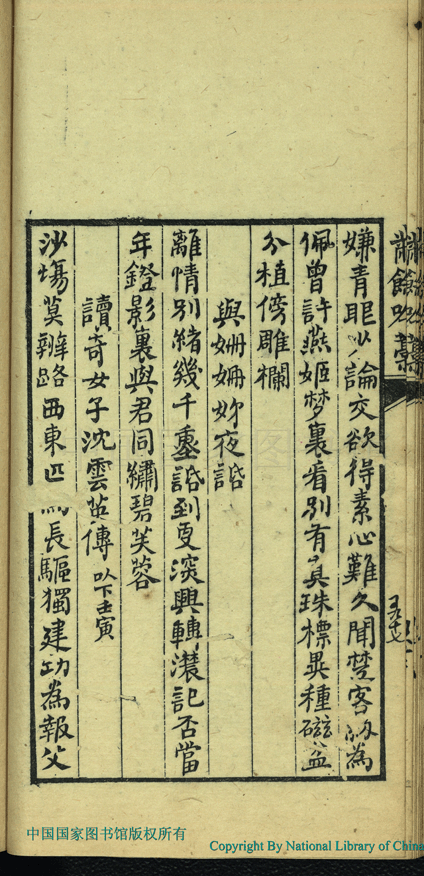 嫌青眼以論交欲得素心難久聞楚客紉為
佩曾許燕姬梦裏看別有真珠標異種磁盆
分植傍雕欄
與姍姍妳夜話
離情別緒幾千重話到更深興轉濃記否當
年鐙影裏與君同繡碧芙蓉
讀奇女子沈雲英傳 以下壬寅
沙塲莫辨路西東匹馬長驅獨建功為報父
中国国家图书馆版权所有
Copyright By National Library of China